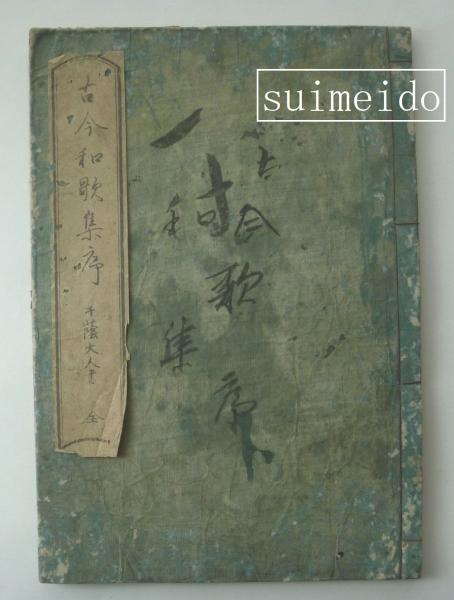 suimeido
古今和歌集序
千蔭大人書
全
古今
歌序
和
集